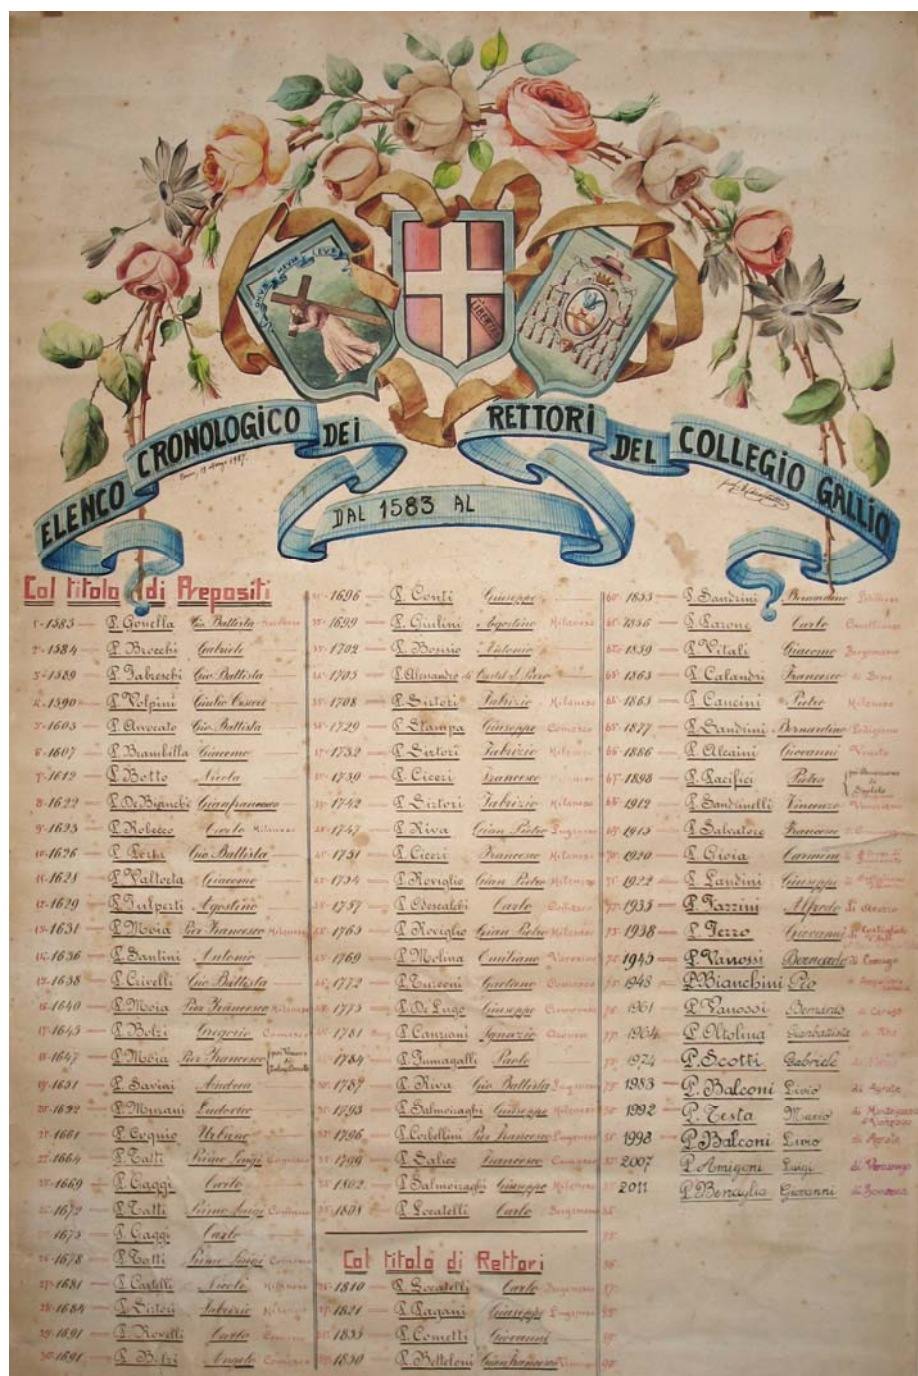 ONUS MEUM LEVE
LIBERTAS
ELENCO CRONOLOGICO DEI RETTORI DEL COLLEGIO GALLIO
DAL 1583 AL
Col titolo di Prepositi
1583 P. Gonella Gio Battista
1584 P. Brocchi Gabriele
1589 P. Fabreschi Gio Battista
1590 P. Volpini Giulio Cesare
1603 P. Avvocato Gio Battista
1607 P. Brambilla Giacomo
1612 P. Botto Nicola
1622 P. De Bianchi Gianfrancesco
1623 P. Robecco Carlo Milanese
1626 P. Porta Gio Battista
1628 P. Valtorta Giacomo
1629 P. Tulperti Agostino
1631 P. Moia Pier Francesco Milanese
1636 P. Santini Antonio
1638 P. Crivelli Gio Battista
1640 P. Moia Pier Francesco Milanese
1643 P. Bolzi Gregorio Comasco
1647 P. Moia Pier Francesco
1651 P. Savini Andrea
P. Mirani Ludovico
1661 P. Coquio Urbano
1664 P. Tatti Primo Luigi
1669 P. Gaggi Carlo
1672 P. Tatti Primo Luigi
1675 P. Gaggi Carlo
1678 P. Tatti Primo Luigi
1681 P. Castelli Nicolò Milanese
1684 P. Sirtori Fabrizio Milanese
1691 P. Rovelli Carlo Comasco
1691 P. Bolzi Angelo Comasco
1696 P. Conti Giuseppe
1699 P. Giulini Agostino Milanese
1702 P. Bosisio Antonio
1705 P. Alessandro di Castel S. Pietro
1708 P. Sirtori Fabrizio Milanese
1729 P. Stampa Giuseppe Comasco
1732 P. Sirtori Fabrizio Milanese
1739 P. Ciceri Francesco
1742 P. Sirtori Fabrizio Milanese
1747 P. Riva Gian Pietro Luganese
1751 P. Ciceri Francesco Milanese
1754 P. Roviglio Gian Pietro Milanese
1757 P. Odescalchi Carlo Comasco
1763 P. Roviglio Gian Pietro Milanese
1769 P. Molina Emiliano
1772 P. Turconi Gaetano Comasco
1775 P. De Lugo Giuseppe
1781 P. Canziani Ignazio
1784 P. Fumagalli Paolo
1787 P. Riva Gio Battista Luganese
1793 P. Salmoiraghi Giuseppe Milanese
1796 P. Corbellini Pier Francesco Luganese
1799 P. Salice Francesco Comasco
1802 P. Salmoiraghi Giuseppe Milanese
1808 P. Locatelli Carlo Bergamasco
Col titolo di Rettori
1810 P. Locatelli Carlo Bergamasco
1821 P. Pagani Giuseppe Luganese
P. Cometti Giovanni
1850 P. Betteloni Gianfrancesco
1853 P. Sandrini Bernardino
1856 P. Parone Carlo
1859 P. Vitali Giacomo Bergamasco
1863 P. Calandri Francesco
1865 P. Cancini Pietro Milanese
1877 P. Sandrini Bernardino Lodigiano
1886 P. Alcaini Giovanni Veneto
1898 P. Pacifici Pietro
1912 P. Sandrinelli Vincenzo Veneziano
1915 P. Salvatore Francesco
1920 P. Gioia Carmine
1922 P. Landini Giuseppe
1935 P. Fazzini Alfredo
1938 P. Ferro Giovanni
1945 P. Vanossi Bernardo di Carugo
1948 P. Bianchini Pio
1961 P. Vanossi Bernardo di Carugo
1964 P. Altolina Gianbattista di Rho
1974 P. Scotti Gabriele
1983 P. Balconi Livio di Agrate
1992 P. Testa Mario
1998 P. Balconi Livio di Agrate
2007 P. Amigoni Luigi di Vercurago
2011 P. Benaglia Giovanni